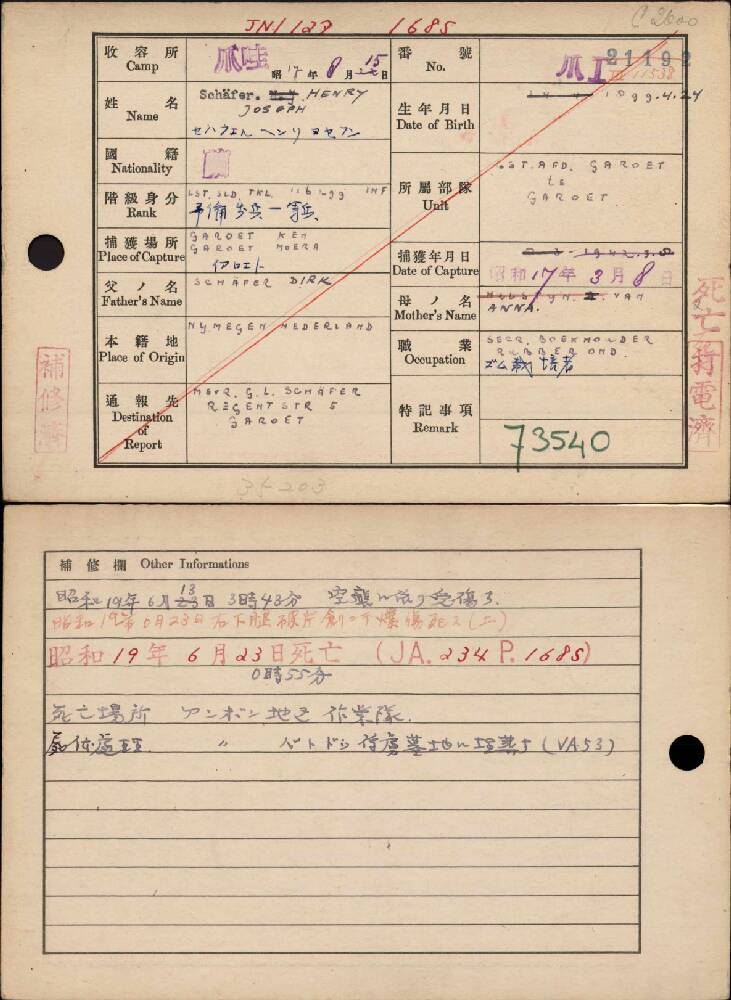 JN1127 1685
C 2600
收容所
Camp
爪哇
昭17年8月15日
番號
No.
爪I 21192
11538
姓名
Name
Schäfer. H.J. HENRY
JOSEPH
生年月日
Date of Birth
1899.4.24
國籍
Nationality
階級身分
Rank
LST. SLD. TKL. INF
所屬部隊
Unit
LST. AFD. GAROET
te
GAROET
捕獲場所
Place of Capture
GAROET KEM
GAROET MOEARA
捕獲年月日
Date of Capture
昭和17年3月8日
父ノ名
Father's Name
SCHÄFER DIRK
母ノ名
Mother's Name
VAN
ANNA.
本籍地
Place of Origin
NYMEGEN NEDERLAND
職業
Occupation
SECR. BOEKHOUDER
RUBBER OND.
ゴム栽培者
通報先
Destination
of
Report
MEVR. G.L. SCHÄFER
REGENTSTR 5
GAROET
特記事項
Remark
73540
補修濟
死亡
電濟
35203
補修欄 Other Informations
昭和19年6月13日3時43分 空襲ニ依リ受傷ス
昭和19年6月23日右下腿
昭和19年6月23日死亡 (JA. 234 P. 1685)
0時55分
死亡場所 アンボン地区 作業隊.
屍体處理 〃 俘虜墓地ニ埋葬ス (VA53)